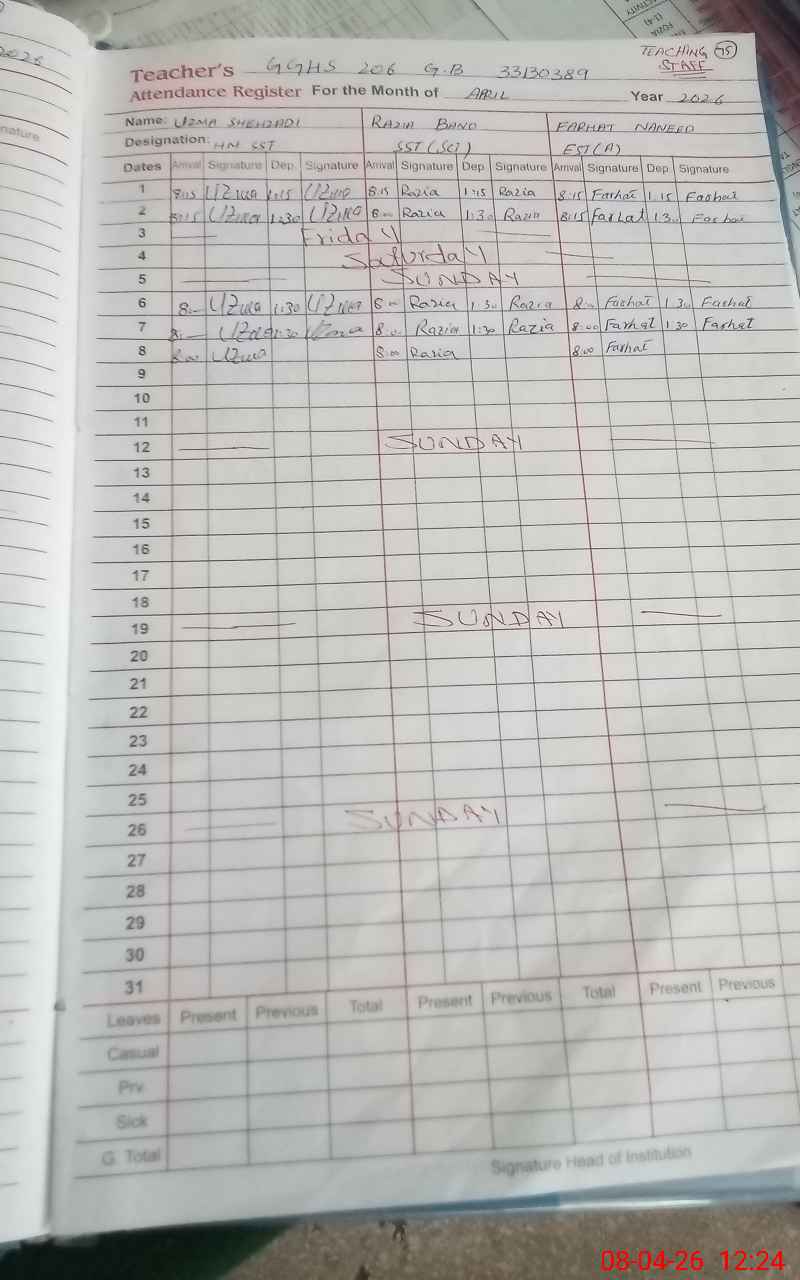 2026
nature
TEACHING 75
STAFF
Teacher's GGHS 206 G.B 33130389
Attendance Register For the Month of APRIL Year 2026
Name: UZMA SHEHZADI RAZIA BANO FARHAT NAHEED
Designation: HM SST SST (Sci) EST (A)
Dates Arrival Signature Dep. Signature Arrival Signature Dep. Signature Arrival Signature Dep. Signature
1 8:15 Uzma 1:15 Uzma 8:15 Razia 1:15 Razia 8:15 Farhat 1:15 Farhat
2 8:15 Uzma 1:30 Uzma 8:00 Razia 1:30 Razia 8:15 Farhat 1:30 Farhat
3 Friday
4 Saturday
5 SUNDAY
6 8:— Uzma 1:30 Uzma 8:00 Razia 1:30 Razia 8:00 Farhat 1:30 Farhat
7 8:— Uzma 1:30 Uzma 8:00 Razia 1:30 Razia 8:00 Farhat 1:30 Farhat
8 8:00 Uzma 8:00 Razia 8:00 Farhat
9
10
11
12 SUNDAY
13
14
15
16
17
18
19 SUNDAY
20
21
22
23
24
25
26 SUNDAY
27
28
29
30
31
Leaves Present Previous Total Present Previous Total Present Previous
Casual
Prv.
Sick
G. Total
Signature Head of Institution
08-04-26 12:24